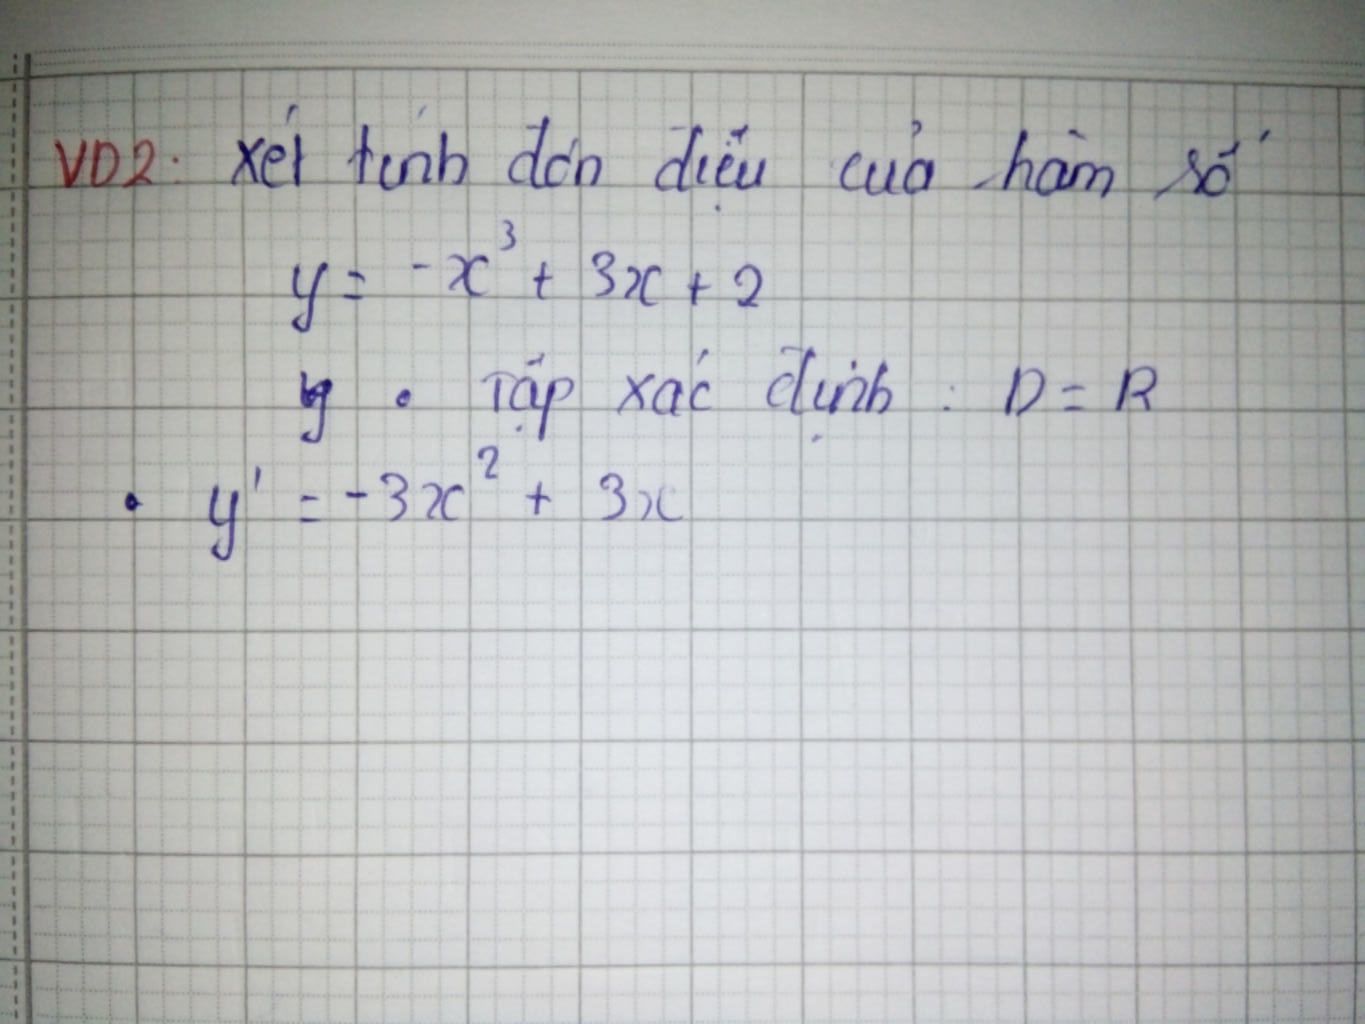 VD2: Xét tính đơn điệu của hàm số
y = -x³ + 3x + 2
y • Tập xác định : D = R
• y' = -3x² + 3x